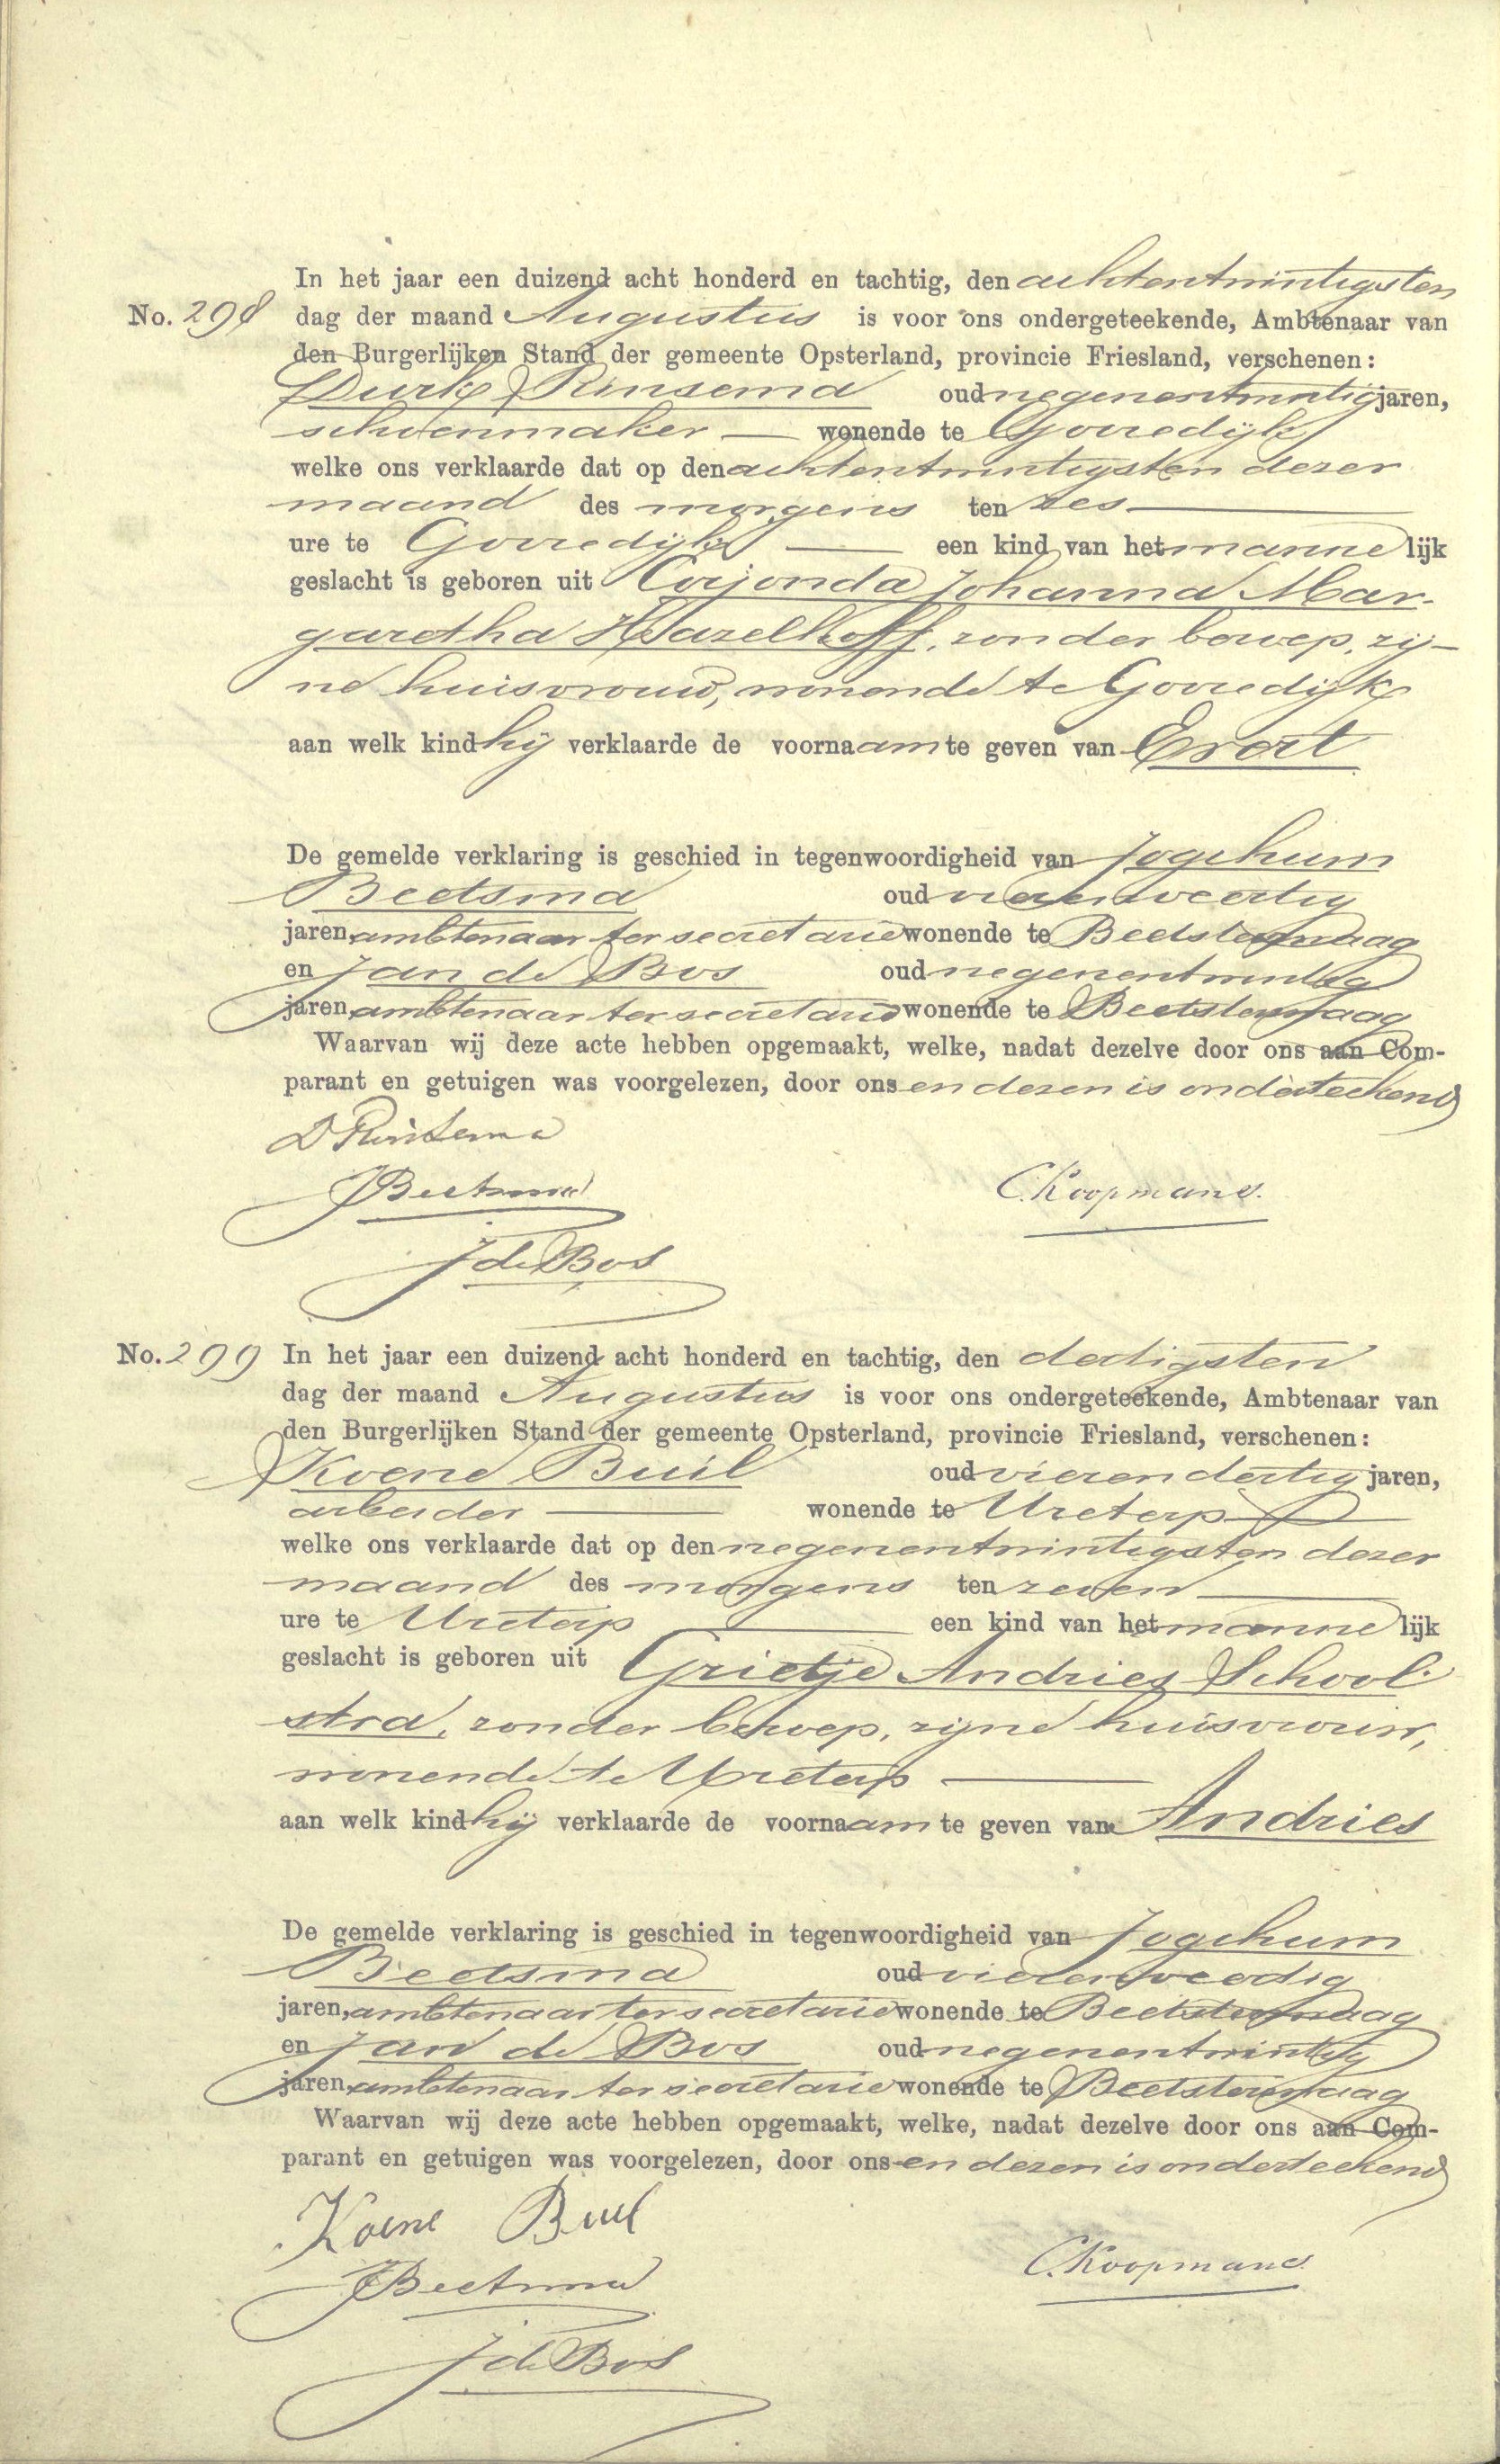 In het jaar een duizend acht honderd en tachtig, den achtentwintigsten
No. 298 dag der maand Augustus is voor ons ondergeteekende, Ambtenaar van
den Burgerlijken Stand der gemeente Opsterland, provincie Friesland, verschenen:
Durk Rinsema oud negenentwintig jaren,
schoenmaker — wonende te Gorredijk
welke ons verklaarde dat op den achtentwintigsten dezer
maand des morgens ten zes —
ure te Gorredijk — een kind van het mannelijk
geslacht is geboren uit Corjonda Johanna Mar-
garetha Hazelhoff, zonder beroep, zij-
ne huisvrouw, wonende te Gorredijk
aan welk kind hij verklaarde de voornaam te geven van Evert
De gemelde verklaring is geschied in tegenwoordigheid van Jogchum
Beetsma oud vierenveertig
jaren, ambtenaar ter secretarie wonende te Beetsterzwaag
en Jan de Bos oud negenentwintig
jaren, ambtenaar ter secretarie wonende te Beetsterzwaag
Waarvan wij deze acte hebben opgemaakt, welke, nadat dezelve door ons aan Com-
parant en getuigen was voorgelezen, door ons en dezen is onderteekend
D Rinsema
JBeetsma C. Koopmans.
J de Bos
No. 299 In het jaar een duizend acht honderd en tachtig, den dertigsten
dag der maand Augustus is voor ons ondergeteekende, Ambtenaar van
den Burgerlijken Stand der gemeente Opsterland, provincie Friesland, verschenen:
Koene Buil oud vierendertig jaren,
arbeider — wonende te Ureterp —
welke ons verklaarde dat op den negenentwintigsten dezer
maand des morgens ten zeven —
ure te Ureterp — een kind van het mannelijk
geslacht is geboren uit Grietje Andries School-
stra, zonder beroep, zijne huisvrouw,
wonende te Ureterp —
aan welk kind hij verklaarde de voornaam te geven van Andries
De gemelde verklaring is geschied in tegenwoordigheid van Jogchum
Beetsma oud vierenveertig
jaren, ambtenaar ter secretarie wonende te Beetsterzwaag
en Jan de Bos oud negenentwintig
jaren, ambtenaar ter secretarie wonende te Beetsterzwaag
Waarvan wij deze acte hebben opgemaakt, welke, nadat dezelve door ons aan Com-
parant en getuigen was voorgelezen, door ons en dezen is onderteekend
Koene Buil
JBeetsma C. Koopmans
J de Bos